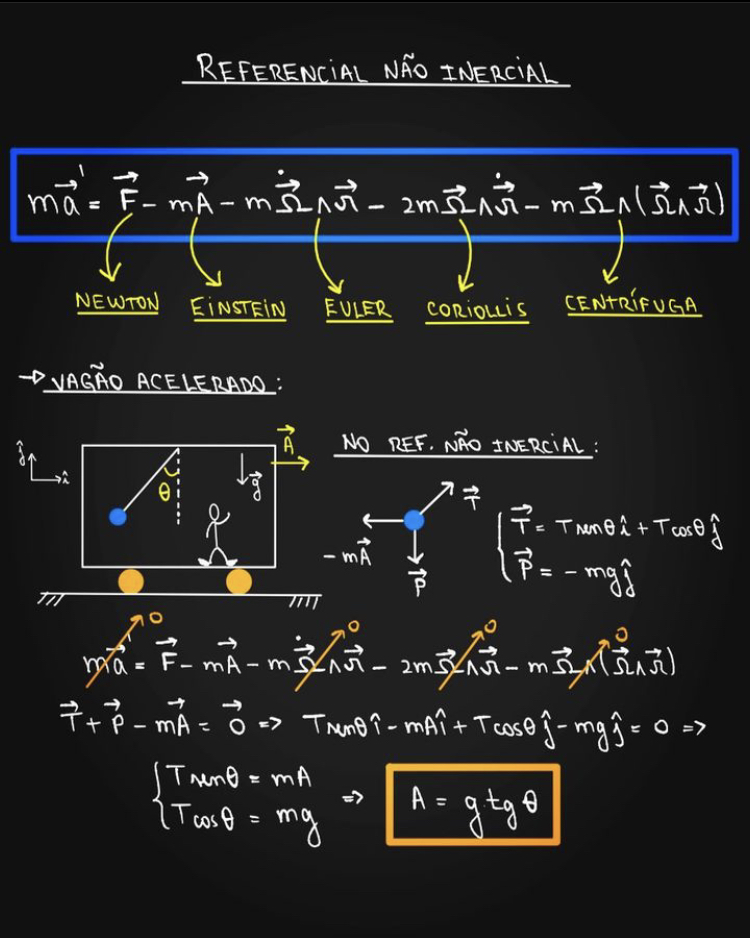 REFERENCIAL NÃO INERCIAL
ma⃗' = F⃗ - mA⃗ - mΩ⃗̇ ∧ r⃗ - 2mΩ⃗ ∧ r⃗̇ - mΩ⃗ ∧ (Ω⃗ ∧ r⃗)
NEWTON EINSTEIN EULER CORIOLLIS CENTRÍFUGA
→ VAGÃO ACELERADO:
ĵ î θ g⃗ A⃗
NO REF. NÃO INERCIAL:
T⃗ -mA⃗ P⃗
T⃗ = T sen θ î + T cos θ ĵ
P⃗ = - mg ĵ
0 0 0 0
ma⃗' = F⃗ - mA⃗ - mΩ⃗̇ ∧ r⃗ - 2mΩ⃗ ∧ r⃗ - mΩ⃗ ∧ (Ω⃗ ∧ r⃗)
T⃗ + P⃗ - mA⃗ = 0⃗ => T sen θ î - mA î + T cos θ ĵ - mg ĵ = 0 =>
T sen θ = mA
T cos θ = mg
=> A = g.tg θ